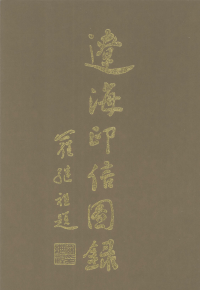 遼海印信圖錄
羅繼祖題